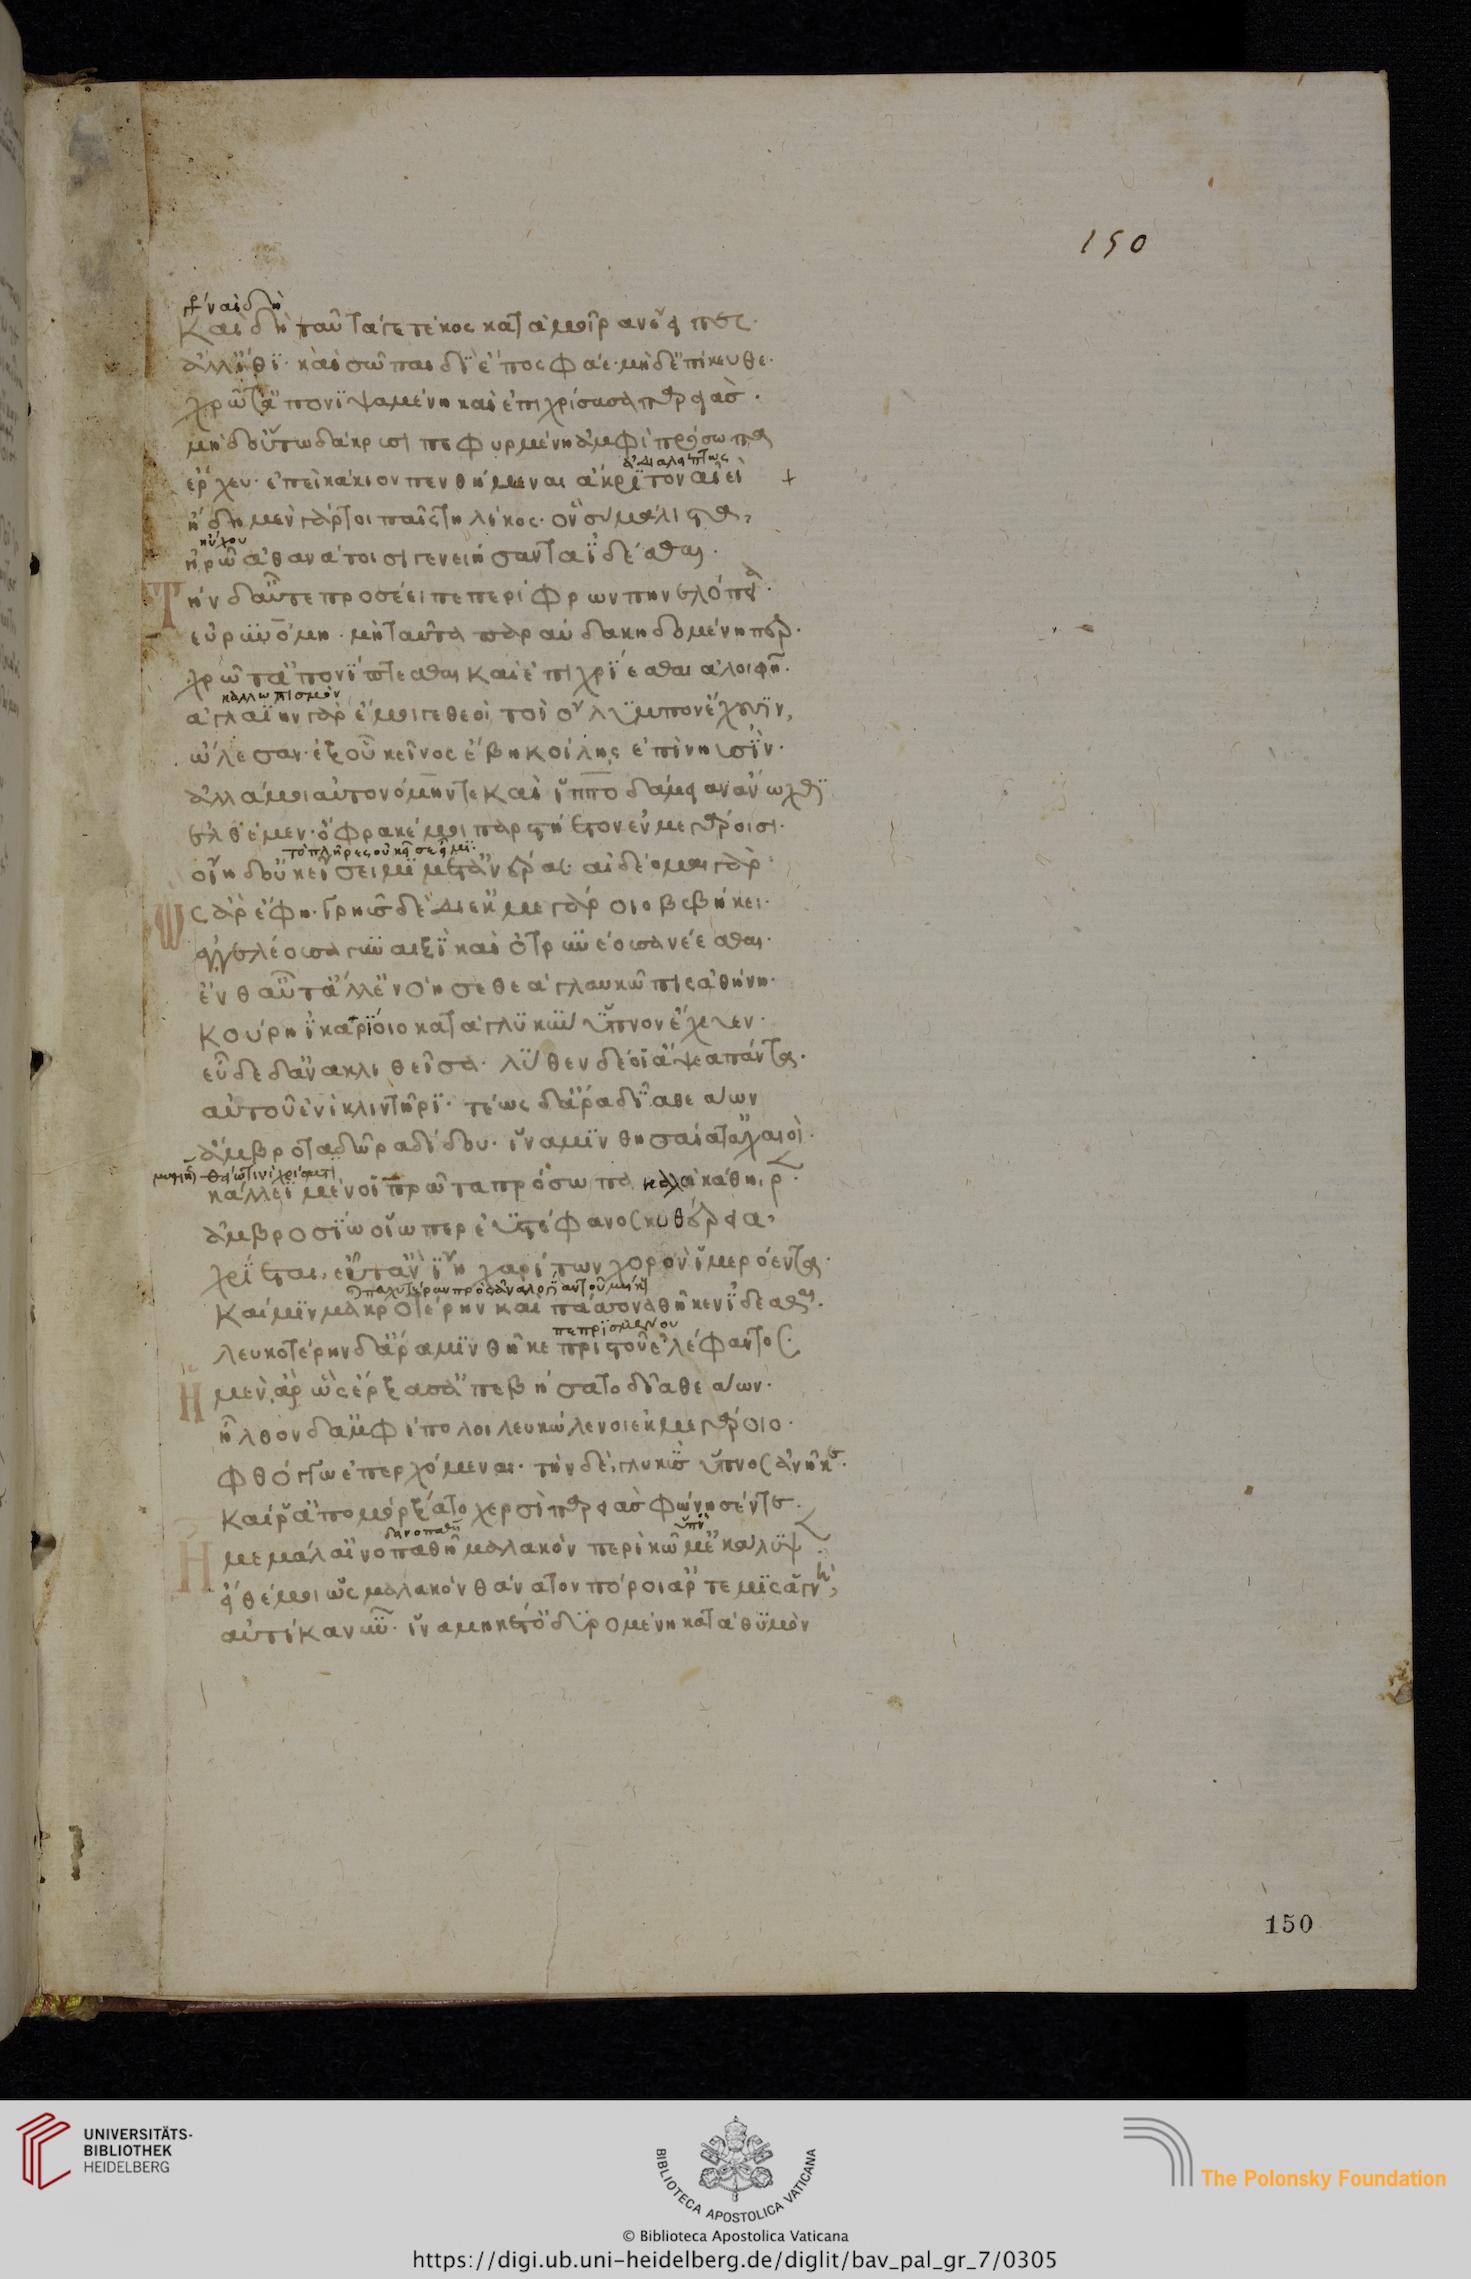 150
ναὶ δὴ
Καὶ δὴ ταῦτά γε τέκος κατὰ μοῖραν ἔειπες·
ἀλλ' ἴθι· καὶ σῶ παιδὶ ἔπος φάε· μὴ δ' ἐπίκευθε·
χρῶτ' ἀπονιψαμένη καὶ ἐπιχρίσασα παρειάς·
μὴ δ' οὕτω δάκρυσι πεφυρμένη ἀμφὶ πρόσωπα
ἀδιαλείπτως
ἔρχευ· ἐπεὶ κάκιον πενθήμεναι ἄκριτον αἰεὶ
ἤδη μὲν γάρ τοι παῖς τηλίκος· ὃν σὺ μάλιστα,
ηὔχου
ἠρῶ ἀθανάτοισι γενειήσαντα ἰδέσθαι·
Τὴν δ' αὖτε προσέειπε περίφρων πηνελόπεια·
εὐρυνόμη· μὴ ταῦτα παραύδα κηδομένη περ·
χρῶτ' ἀπονίπτεσθαι καὶ ἐπιχρίεσθαι ἀλοιφῆ·
καλλωπισμὸν
ἀγλαΐην γὰρ ἔμοιγε θεοὶ τοὶ ὄλυμπον ἔχουσιν,
ὤλεσαν· ἐξ οὗ κεῖνος ἔβη κοίλης ἐπὶ νηυσίν·
ἀλλά μοι αὐτονόμην τε καὶ ἱπποδάμειαν ἄνωχθι
ἐλθέμεν· ὄφρα κέ μοι παρστήετον ἐν μεγάροισι·
τὸ πλῆρες οὐ κεῖσε εἶμι·
οἴη δ' οὐ κεῖσ' εἶμι μετ' ἀνέρας· αἰδέομαι γάρ·
Ὣς ἄρ' ἔφη· γρηῢς δὲ διὲκ μεγάροιο βεβήκει·
ἀγγελέουσα γυναιξὶ καὶ ὀτρυνέουσα νέεσθαι·
ἔνθ' αὖτ' ἄλλ' ἐνόησε θεὰ γλαυκῶπις ἀθήνη·
κούρη ἰκαρίοιο κατὰ γλυκὺν ὕπνον ἔχευεν·
εὗδε δ' ἀνακλιθεῖσα· λύθεν δέ οἱ ἅψεα πάντα·
αὐτοῦ ἐνὶ κλιντῆρι· τέως δ' ἄρα δῖα θεάων
ἄμβροτα δῶρα δίδου· ἵνα μιν θησαίατ' ἀχαιοί·
κάλλεϊ μέν οἱ πρῶτα πρόσωπα καλὰ κάθηρ·
ἀμβροσίω οἵω περ ἐϋστέφανος κυθέρεια,
χρίεται, εὖτ' ἂν ἴη χαρίτων χορὸν ἱμερόεντα·
καί μιν μακροτέρην καὶ πάσσονα θῆκεν ἰδέσθαι·
πεπρισμένου
λευκοτέρην δ' ἄρα μιν θῆκε πριστοῦ ἐλέφαντος·
Ἡ μὲν ἄρ' ὣς ἔρξασ' ἀπεβήσατο δῖα θεάων·
ἦλθον δ' ἀμφίπολοι λευκώλενοι ἐκ μεγάροιο·
φθόγγω ἐπερχόμεναι· τὴν δὲ γλυκὺς ὕπνος ἀνῆκε·
καί ῥ' ἀπομόρξατο χερσὶ παρειὰς φώνησέν τε·
Ἦ με μάλ' αἰνοπαθῆ μαλακὸν περὶ κῶμ' ἐκάλυψ·
εἴθε μοι ὣς μαλακὸν θάνατον πόροι ἄρτεμις ἁγνὴ,
αὐτίκα νῦν· ἵνα μηκέτ' ὀδυρομένη κατὰ θυμὸν
150
UNIVERSITÄTS-
BIBLIOTHEK
HEIDELBERG
BIBLIOTECA APOSTOLICA VATICANA
The Polonsky Foundation
© Biblioteca Apostolica Vaticana
https://digi.ub.uni-heidelberg.de/diglit/bav_pal_gr_7/0305